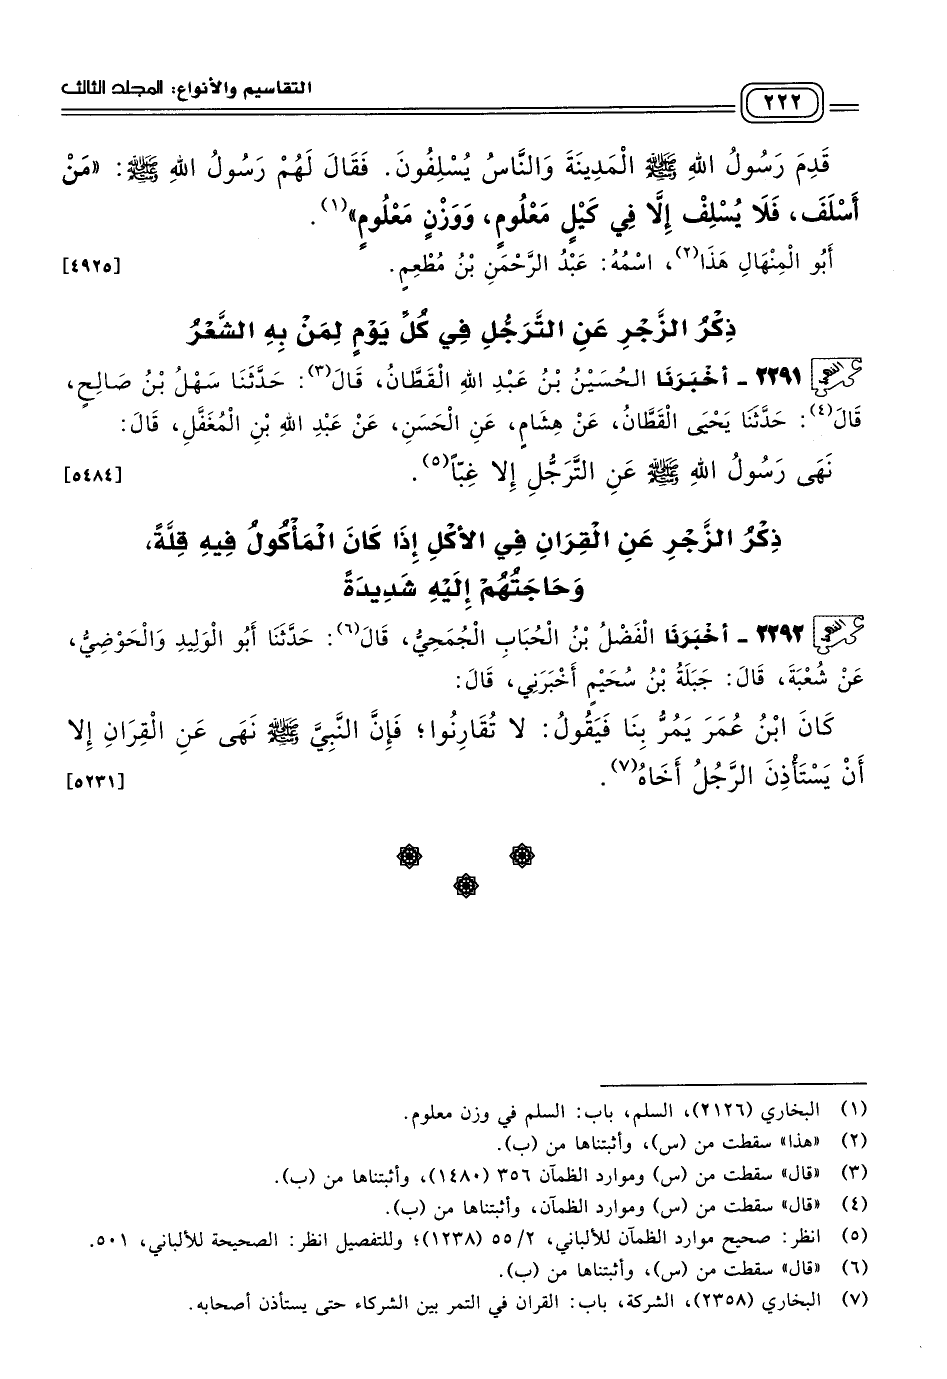 التقاسيم والأنواع: المجلد الثالث
٢٢٢
قَدِمَ رَسُولُ اللهِ ﷺ الْمَدِينَةَ وَالنَّاسُ يُسْلِفُونَ. فَقَالَ لَهُمْ رَسُولُ اللهِ ﷺ: «مَنْ
أَسْلَفَ، فَلَا يُسْلِفْ إِلَّا فِي كَيْلٍ مَعْلُومٍ، وَوَزْنٍ مَعْلُومٍ»(١).
أَبُو الْمِنْهَالِ هَذَا(٢)، اسْمُهُ: عَبْدُ الرَّحْمَنِ بْنُ مُطْعِمٍ. [٤٩٢٥]
ذِكْرُ الزَّجْرِ عَنِ التَّرَجُّلِ فِي كُلِّ يَوْمٍ لِمَنْ بِهِ الشَّعْرُ
٢٢٩١ - أَخْبَرَنَا الحُسَيْنُ بْنُ عَبْدِ اللهِ الْقَطَّانُ، قَالَ(٣): حَدَّثَنَا سَهْلُ بْنُ صَالِحٍ،
قَالَ(٤): حَدَّثَنَا يَحْيَى الْقَطَّانُ، عَنْ هِشَامٍ، عَنِ الْحَسَنِ، عَنْ عَبْدِ اللهِ بْنِ الْمُغَفَّلِ، قَالَ:
نَهَى رَسُولُ اللهِ ﷺ عَنِ التَّرَجُّلِ إِلا غِبّاً(٥). [٥٤٨٤]
ذِكْرُ الزَّجْرِ عَنِ الْقِرَانِ فِي الأَكْلِ إِذَا كَانَ الْمَأْكُولُ فِيهِ قِلَّةً،
وَحَاجَتُهُمْ إِلَيْهِ شَدِيدَةً
٢٢٩٢ - أَخْبَرَنَا الْفَضْلُ بْنُ الْحُبَابِ الْجُمَحِيُّ، قَالَ(٦): حَدَّثَنَا أَبُو الْوَلِيدِ وَالْحَوْضِيُّ،
عَنْ شُعْبَةَ، قَالَ: جَبَلَةُ بْنُ سُحَيْمٍ أَخْبَرَنِي، قَالَ:
كَانَ ابْنُ عُمَرَ يَمُرُّ بِنَا فَيَقُولُ: لا تُقَارِنُوا؛ فَإِنَّ النَّبِيَّ ﷺ نَهَى عَنِ الْقِرَانِ إِلا
أَنْ يَسْتَأْذِنَ الرَّجُلُ أَخَاهُ(٧). [٥٢٣١]
(١) البخاري (٢١٢٦)، السلم، باب: السلم في وزن معلوم.
(٢) «هذا» سقطت من (س)، وأثبتناها من (ب).
(٣) «قال» سقطت من (س) وموارد الظمآن ٣٥٦ (١٤٨٠)، وأثبتناها من (ب).
(٤) «قال» سقطت من (س) وموارد الظمآن، وأثبتناها من (ب).
(٥) انظر: صحيح موارد الظمآن للألباني، ٢/ ٥٥ (١٢٣٨)؛ وللتفصيل انظر: الصحيحة للألباني، ٥٠١.
(٦) «قال» سقطت من (س)، وأثبتناها من (ب).
(٧) البخاري (٢٣٥٨)، الشركة، باب: القران في التمر بين الشركاء حتى يستأذن أصحابه.